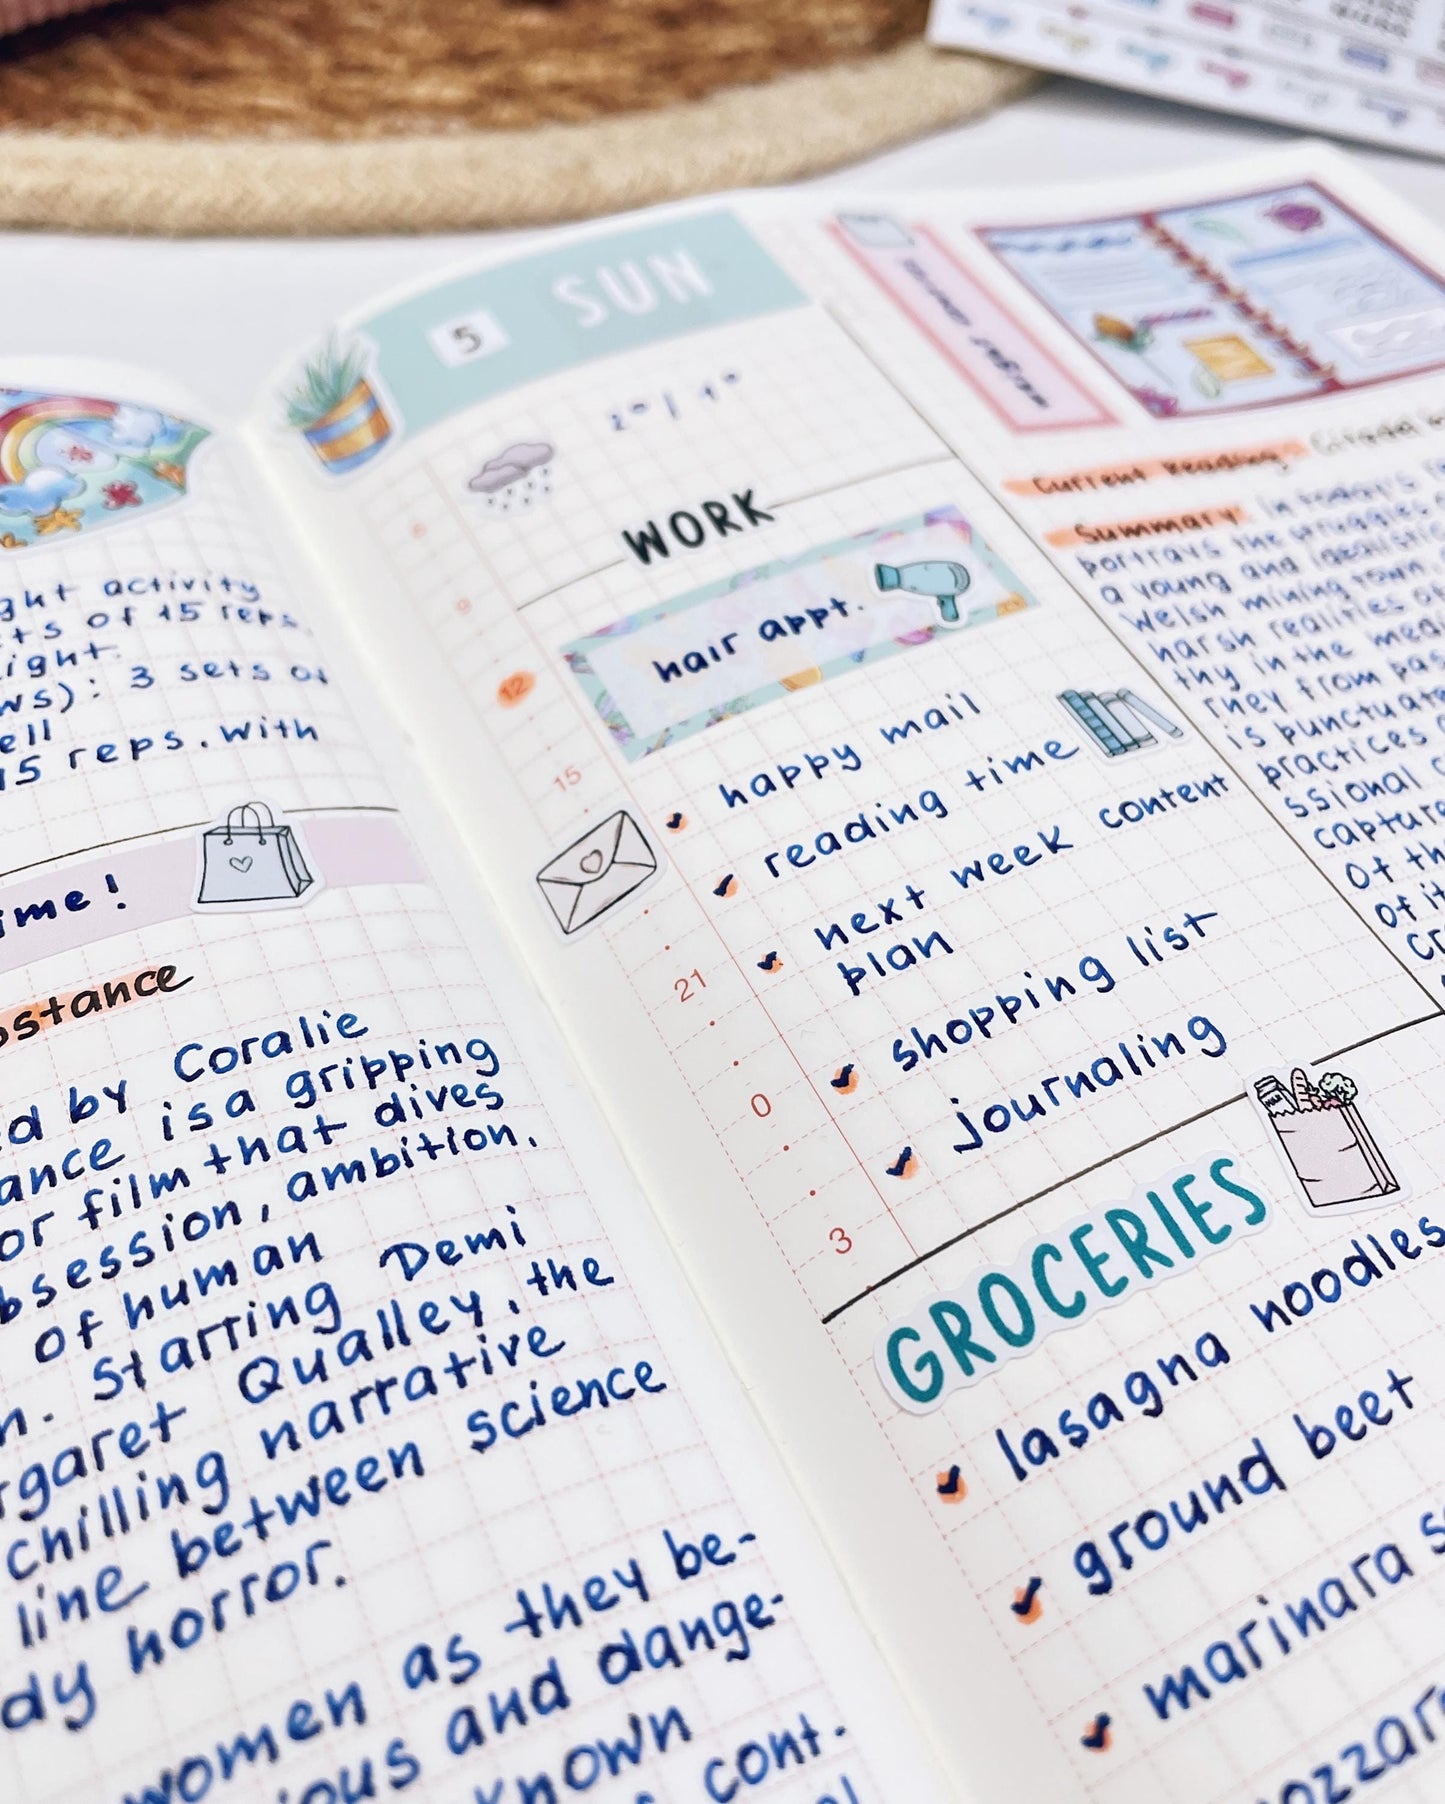 ght activity
ts of 15 reps.
ight.
ws): 3 sets of
ell
15 reps. with
ime!
bstance
ed by Coralie
ance is a gripping
or film that dives
bsession, ambition,
of human
n. Starring Demi
rgaret Qualley, the
chilling narrative
line between science
dy horror.
women as they be-
ious and dange-
known
cont.
5 SUN
WORK
hair appt.
12
15
21
0
3
happy mail
reading time
next week content
plan
shopping list
journaling
GROCERIES
lasagna noodles
ground beet
marinara s
ozzar
Current Reading: Citadel
Summary: In today's re
portrays the struggles
a young and idealistic
Welsh mining town.
harsh realities o
thy in the medi
rney from pas
is punctuate
practices
ssional c
capture
of th
of it
cr